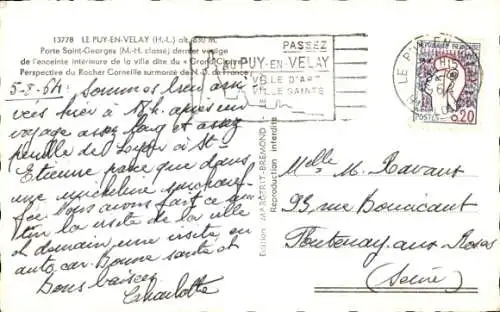 13778 LE PUY-EN-VELAY (H.-L.) alt. 630 m.
Porte Saint-Georges (M.-H. classé) dernier vestige
de l'enceinte intérieure de la ville dite du « Grand Cloître »
Perspective du Rocher Corneille surmonté de N.-D. de France
PASSEZ
au PUY-EN-VELAY
VILLE D'ART
VILLE SAINTE
LE PUY EN
REPUBLIQUE FRANÇAISE
POSTES 0,20
5-8-64. Sommes bien arri
vés hier à 18h. après un
voyage assez long et assez
pénible de Lyon à St-
Etienne parce que dans
une micheline surchauf-
fée. Nous avons fait ce ma
tin la visite de la ville
et demain, une visite en
auto car. Bonne santé et
bons baisers
Charlotte
Edition MARGERIT-BREMOND - LE
Reproduction interdite
Melle M. Ravaux
93 rue Boucicaut
Fontenay-aux-Roses
(Seine)